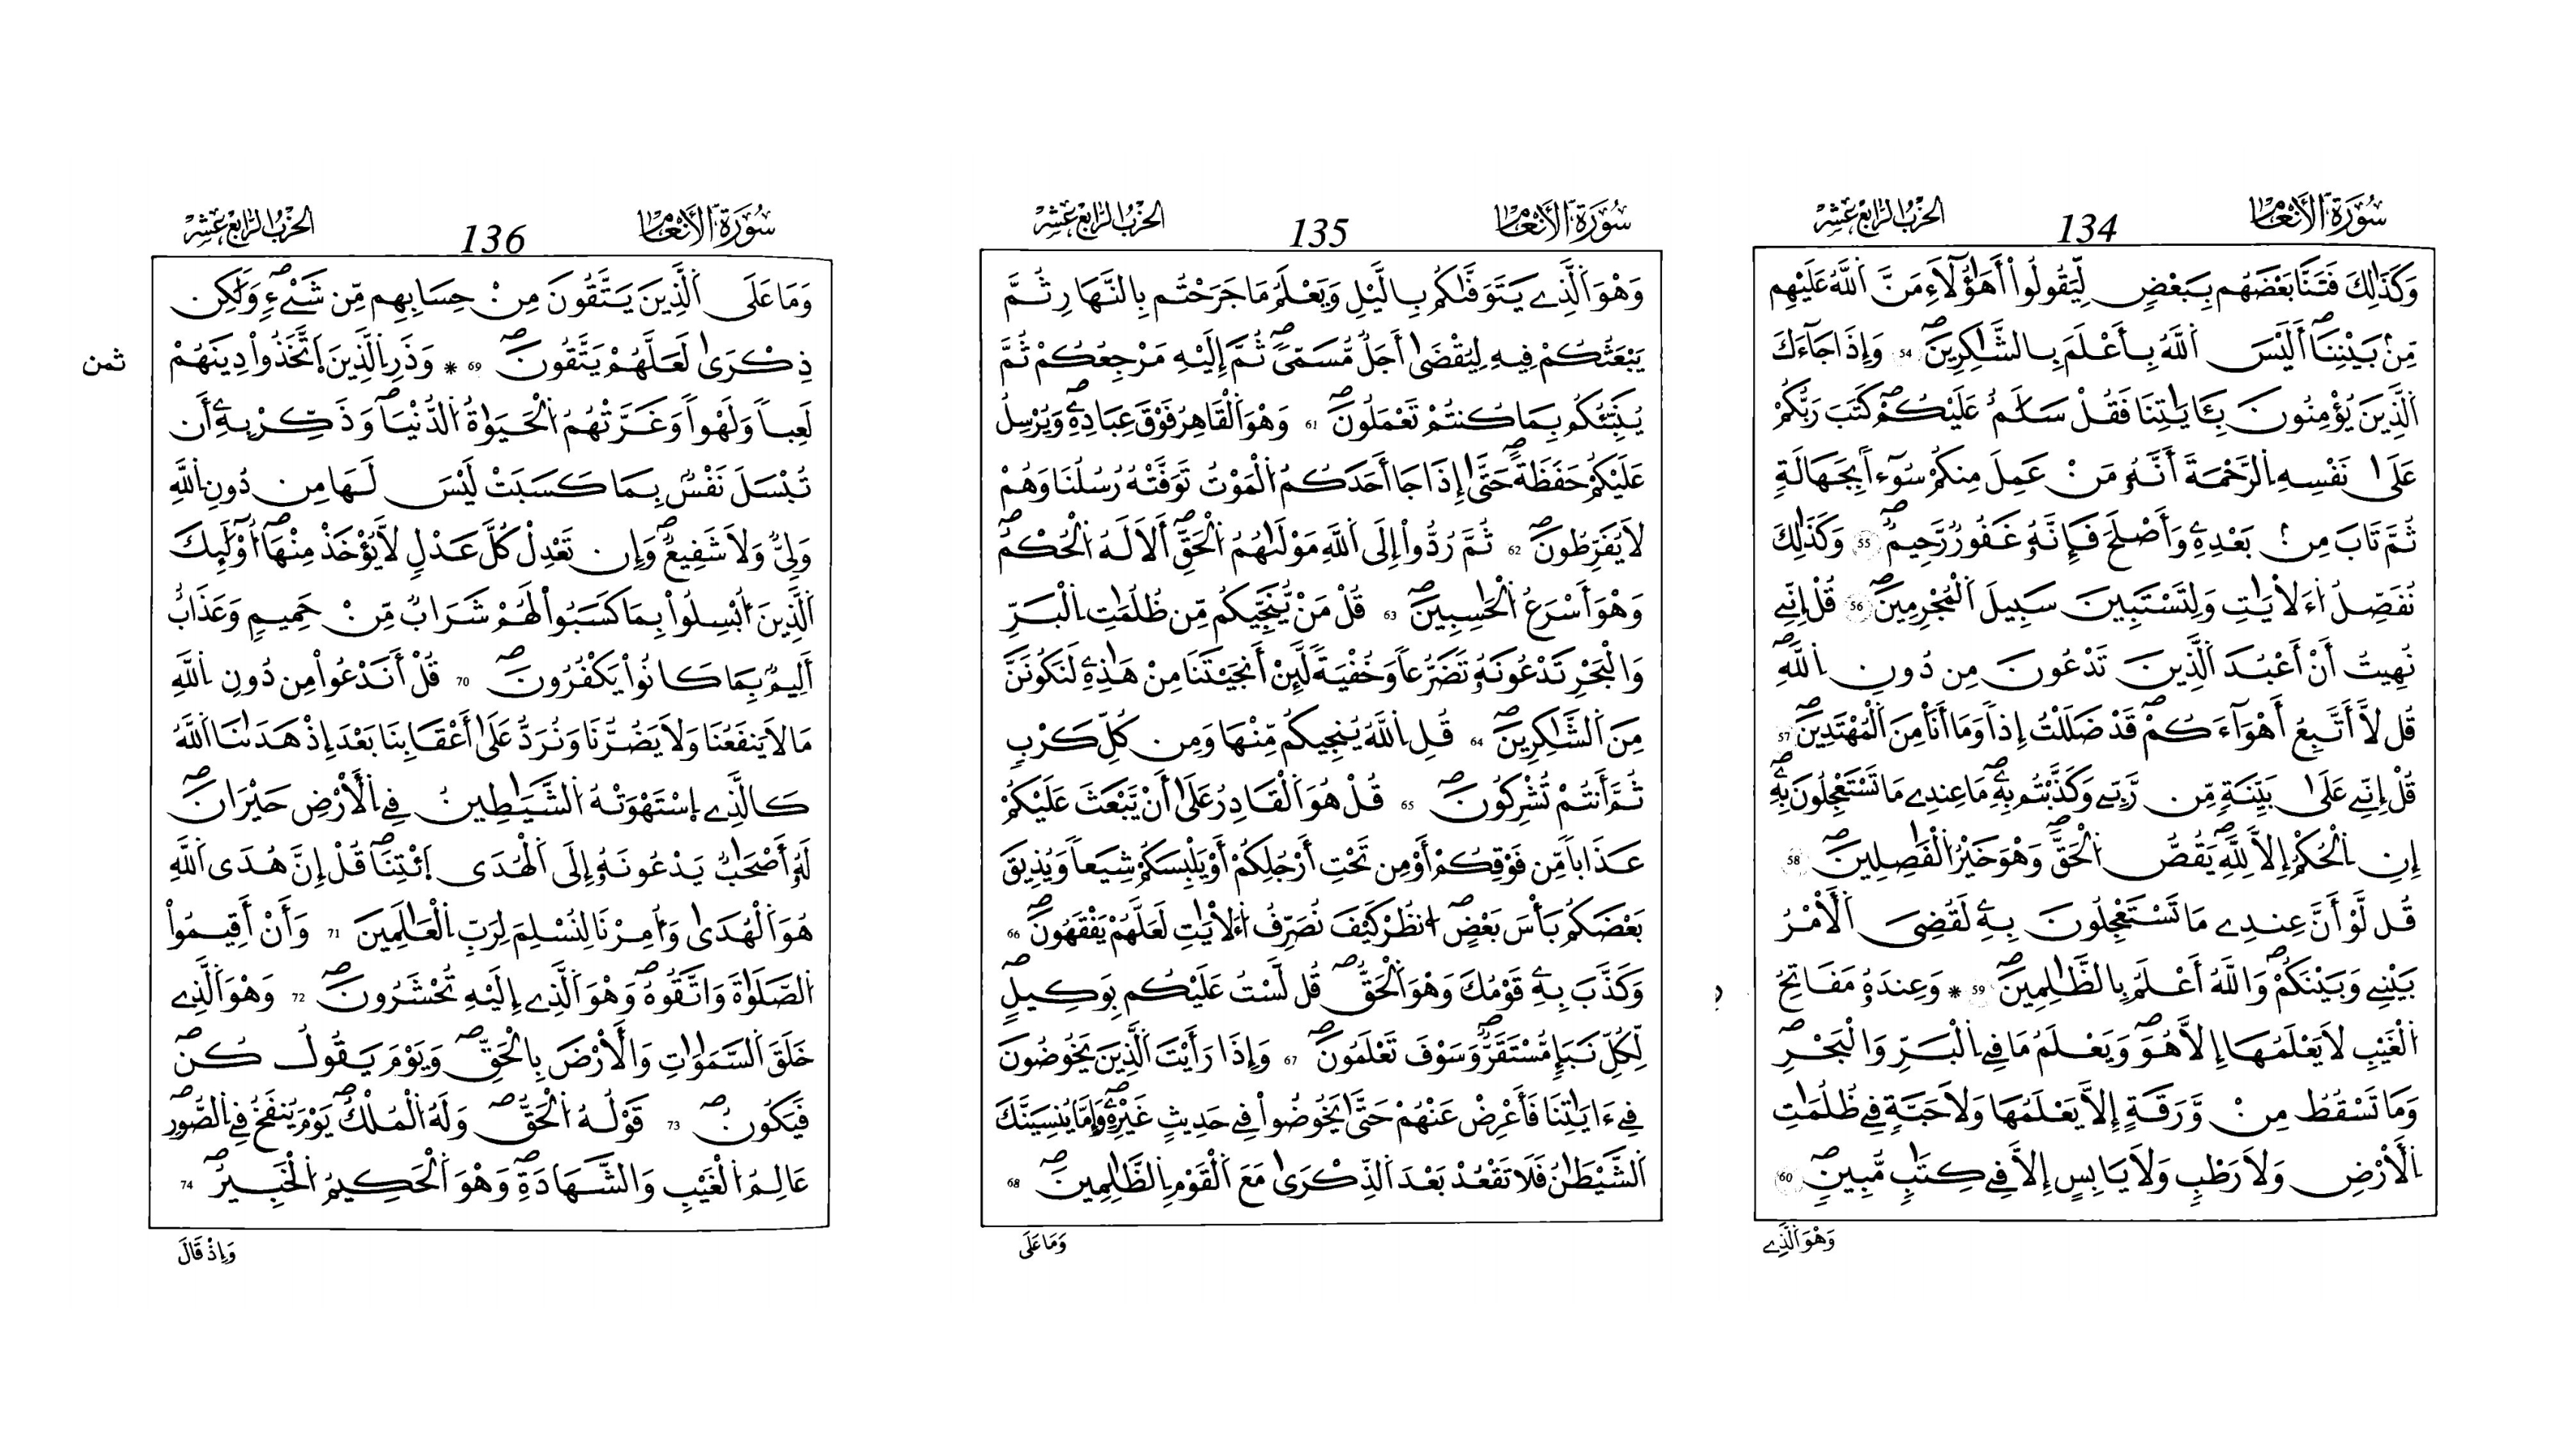 سُورَةُ الأَنْعَام
134
الحزب الرابع عشر
وَكَذَٰلِكَ فَتَنَّا بَعْضَهُم بِبَعْضٍ لِّيَقُولُواْ أَهَٰؤُلَآءِ مَنَّ اَللَّهُ عَلَيْهِم
مِّنۢ بَيْنِنَآۖ أَلَيْسَ اَللَّهُ بِأَعْلَمَ بِالشَّٰكِرِينَۖ 54 وَإِذَا جَآءَكَ
اَلذِينَ يُؤْمِنُونَ بِـَٔايَٰتِنَا فَقُلْ سَلَٰمٌ عَلَيْكُمْۖ كَتَبَ رَبُّكُمْ
عَلَىٰ نَفْسِهِ اِلرَّحْمَةَ أَنَّهُۥ مَنْ عَمِلَ مِنكُمْ سُوٓءاَۢ بِجَهَٰلَةٍ
ثُمَّ تَابَ مِنۢ بَعْدِهِۦ وَأَصْلَحَ فَإِنَّهُۥ غَفُورٌ رَّحِيمٌۖ 55 وَكَذَٰلِكَ
نُفَصِّلُ اُءَلَايَٰتِ وَلِتَسْتَبِينَ سَبِيلَ اَلْمُجْرِمِينَۖ 56 قُلْ إِنِّے
نُهِيتُ أَنْ أَعْبُدَ اَلذِينَ تَدْعُونَ مِن دُونِ اِللَّهِۖ
قُل لَّآ أَتَّبِعُ أَهْوَآءَكُمْۖ قَدْ ضَلَلْتُ إِذاً وَمَآ أَنَا مِنَ اَلْمُهْتَدِينَۖ 57
قُلْ إِنِّے عَلَىٰ بَيِّنَةٍ مِّن رَّبِّے وَكَذَّبْتُم بِهِۦۖ مَا عِندِے مَا تَسْتَعْجِلُونَ بِهِۦۖ
إِنِ اِلْحُكْمُ إِلَّا لِلهِۖ يَقُصُّ اُلْحَقَّۖ وَهْوَ خَيْرُ اُلْفَٰصِلِينَۖ 58
قُل لَّوْ أَنَّ عِندِے مَا تَسْتَعْجِلُونَ بِهِۦ لَقُضِىَ اَلْأَمْرُ
بَيْنِے وَبَيْنَكُمْۖ وَاللَّهُ أَعْلَمُ بِالظَّٰلِمِينَۖ 59 * وَعِندَهُۥ مَفَاتِحُ
اُلْغَيْبِ لَا يَعْلَمُهَآ إِلَّا هُوَۖ وَيَعْلَمُ مَا فِے اِلْبَرِّ وَالْبَحْرِۖ
وَمَا تَسْقُطُ مِنْ وَّرَقَةٍ إِلَّا يَعْلَمُهَا وَلَا حَبَّةٍ فِے ظُلُمَٰتِ
اِلْأَرْضِ وَلَا رَطْبٍ وَلَا يَابِسٍ إِلَّا فِے كِتَٰبٍ مُّبِينٍۖ 60
وَهْوَ اَلذِے
سُورَةُ الأَنْعَام
135
الحزب الرابع عشر
وَهْوَ اَلذِے يَتَوَفَّىٰكُم بِاليْلِ وَيَعْلَمُ مَا جَرَحْتُم بِالنَّهَارِ ثُمَّ
يَبْعَثُكُمْ فِيهِ لِيُقْضَىٰٓ أَجَلٌ مُّسَمّىۖ ثُمَّ إِلَيْهِ مَرْجِعُكُمْ ثُمَّ
يُنَبِّئُكُم بِمَا كُنتُمْ تَعْمَلُونَۖ 61 وَهْوَ اَلْقَاهِرُ فَوْقَ عِبَادِهِۦۖ وَيُرْسِلُ
عَلَيْكُمْ حَفَظَةًۖ حَتَّىٰٓ إِذَا جَا أَحَدَكُمُ اُلْمَوْتُ تَوَفَّتْهُ رُسُلُنَا وَهُمْ
لَا يُفَرِّطُونَۖ 62 ثُمَّ رُدُّوٓاْ إِلَى اَللَّهِ مَوْلَىٰهُمُ اُلْحَقِّۖ أَلَا لَهُ اُلْحُكْمُۖ
وَهْوَ أَسْرَعُ اُلْحَٰسِبِينَۖ 63 قُلْ مَنْ يُّنَجِّيكُم مِّن ظُلُمَٰتِ اِلْبَرِّ
وَالْبَحْرِ تَدْعُونَهُۥ تَضَرُّعاً وَخُفْيَةً لَّئِنْ أَنجَيْتَنَا مِنْ هَٰذِهِۦ لَنَكُونَنَّ
مِنَ اَلشَّٰكِرِينَۖ 64 قُلِ اِللَّهُ يُنجِيكُم مِّنْهَا وَمِن كُلِّ كَرْبٍ
ثُمَّ أَنتُمْ تُشْرِكُونَۖ 65 قُلْ هُوَ اَلْقَادِرُ عَلَىٰٓ أَنْ يَّبْعَثَ عَلَيْكُمْ
عَذَاباً مِّن فَوْقِكُمْ أَوْ مِن تَحْتِ أَرْجُلِكُمْ أَوْ يَلْبِسَكُمْ شِيَعاً وَيُذِيقَ
بَعْضَكُم بَأْسَ بَعْضٍۖ اُنظُرْ كَيْفَ نُصَرِّفُ اُءَلَايَٰتِ لَعَلَّهُمْ يَفْقَهُونَۖ 66
وَكَذَّبَ بِهِۦ قَوْمُكَ وَهْوَ اَلْحَقُّۖ قُل لَّسْتُ عَلَيْكُم بِوَكِيلٍۖ
لِّكُلِّ نَبَإٍ مُّسْتَقَرٌّۖ وَسَوْفَ تَعْلَمُونَۖ 67 وَإِذَا رَأَيْتَ اَلذِينَ يَخُوضُونَ
فِےٓ ءَايَٰتِنَا فَأَعْرِضْ عَنْهُمْ حَتَّىٰ يَخُوضُواْ فِے حَدِيثٍ غَيْرِهِۦۖ وَإِمَّا يُنسِيَنَّكَ
اَلشَّيْطَٰنُ فَلَا تَقْعُدْ بَعْدَ اَلذِّكْرَىٰ مَعَ اَلْقَوْمِ اِلظَّٰلِمِينَۖ 68
وَمَا عَلَى
سُورَةُ الأَنْعَام
136
الحزب الرابع عشر
وَمَا عَلَى اَلذِينَ يَتَّقُونَ مِنْ حِسَابِهِم مِّن شَےْءٍۖ وَلَٰكِن
ذِكْرَىٰ لَعَلَّهُمْ يَتَّقُونَۖ 69 * وَذَرِ اِلذِينَ اَتَّخَذُواْ دِينَهُمْ
ثمن
لَعِباً وَلَهْواً وَغَرَّتْهُمُ اُلْحَيَوٰةُ اُلدُّنْيَاۖ وَذَكِّرْ بِهِۦٓ أَن
تُبْسَلَ نَفْسٌ بِمَا كَسَبَتْ لَيْسَ لَهَا مِن دُونِ اِللَّهِ
وَلِىٌّ وَلَا شَفِيعٌۖ وَإِن تَعْدِلْ كُلَّ عَدْلٍ لَّا يُؤْخَذْ مِنْهَآۖ أُوْلَٰٓئِكَ
اَلذِينَ أُبْسِلُواْ بِمَا كَسَبُواْ لَهُمْ شَرَابٌ مِّنْ حَمِيمٍ وَعَذَابٌ
أَلِيمٌۢ بِمَا كَانُواْ يَكْفُرُونَۖ 70 قُلْ أَنَدْعُواْ مِن دُونِ اِللَّهِ
مَا لَا يَنفَعُنَا وَلَا يَضُرُّنَا وَنُرَدُّ عَلَىٰٓ أَعْقَابِنَا بَعْدَ إِذْ هَدَىٰنَا اَللَّهُ
كَالذِے اِسْتَهْوَتْهُ اُلشَّيَٰطِينُ فِے اِلْأَرْضِ حَيْرَانَۖ
لَهُۥٓ أَصْحَٰبٌ يَدْعُونَهُۥٓ إِلَى اَلْهُدَى اَئْتِنَاۖ قُلْ إِنَّ هُدَى اَللَّهِ
هُوَ اَلْهُدَىٰ وَأُمِرْنَا لِنُسْلِمَ لِرَبِّ اِلْعَٰلَمِينَ 71 وَأَنْ أَقِيمُواْ
اُلصَّلَوٰةَ وَاتَّقُوهُۖ وَهْوَ اَلذِےٓ إِلَيْهِ تُحْشَرُونَۖ 72 وَهْوَ اَلذِے
خَلَقَ اَلسَّمَٰوَٰتِ وَالْأَرْضَ بِالْحَقِّۖ وَيَوْمَ يَقُولُ كُنۖ
فَيَكُونُۖ 73 قَوْلُهُ اُلْحَقُّۖ وَلَهُ اُلْمُلْكُۖ يَوْمَ يُنفَخُ فِے اِلصُّورِۖ
عَٰلِمُ اُلْغَيْبِ وَالشَّهَٰدَةِۖ وَهْوَ اَلْحَكِيمُ اُلْخَبِيرُۖ 74
وَإِذْ قَالَ